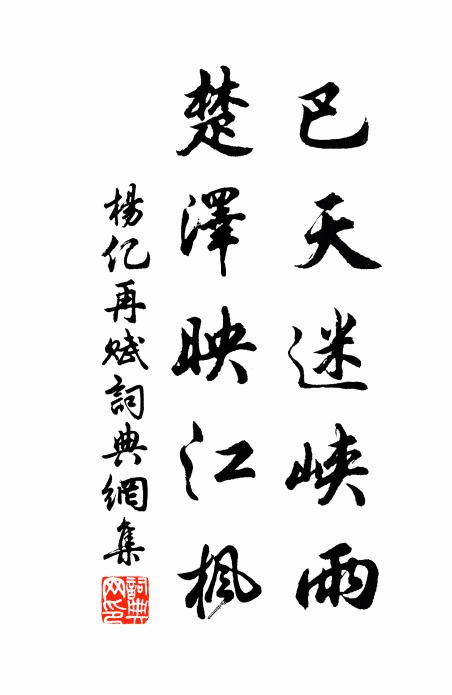 巴天迷峽雨
楚澤映江楓
楊亿再赋詞典網集
詞典
网印